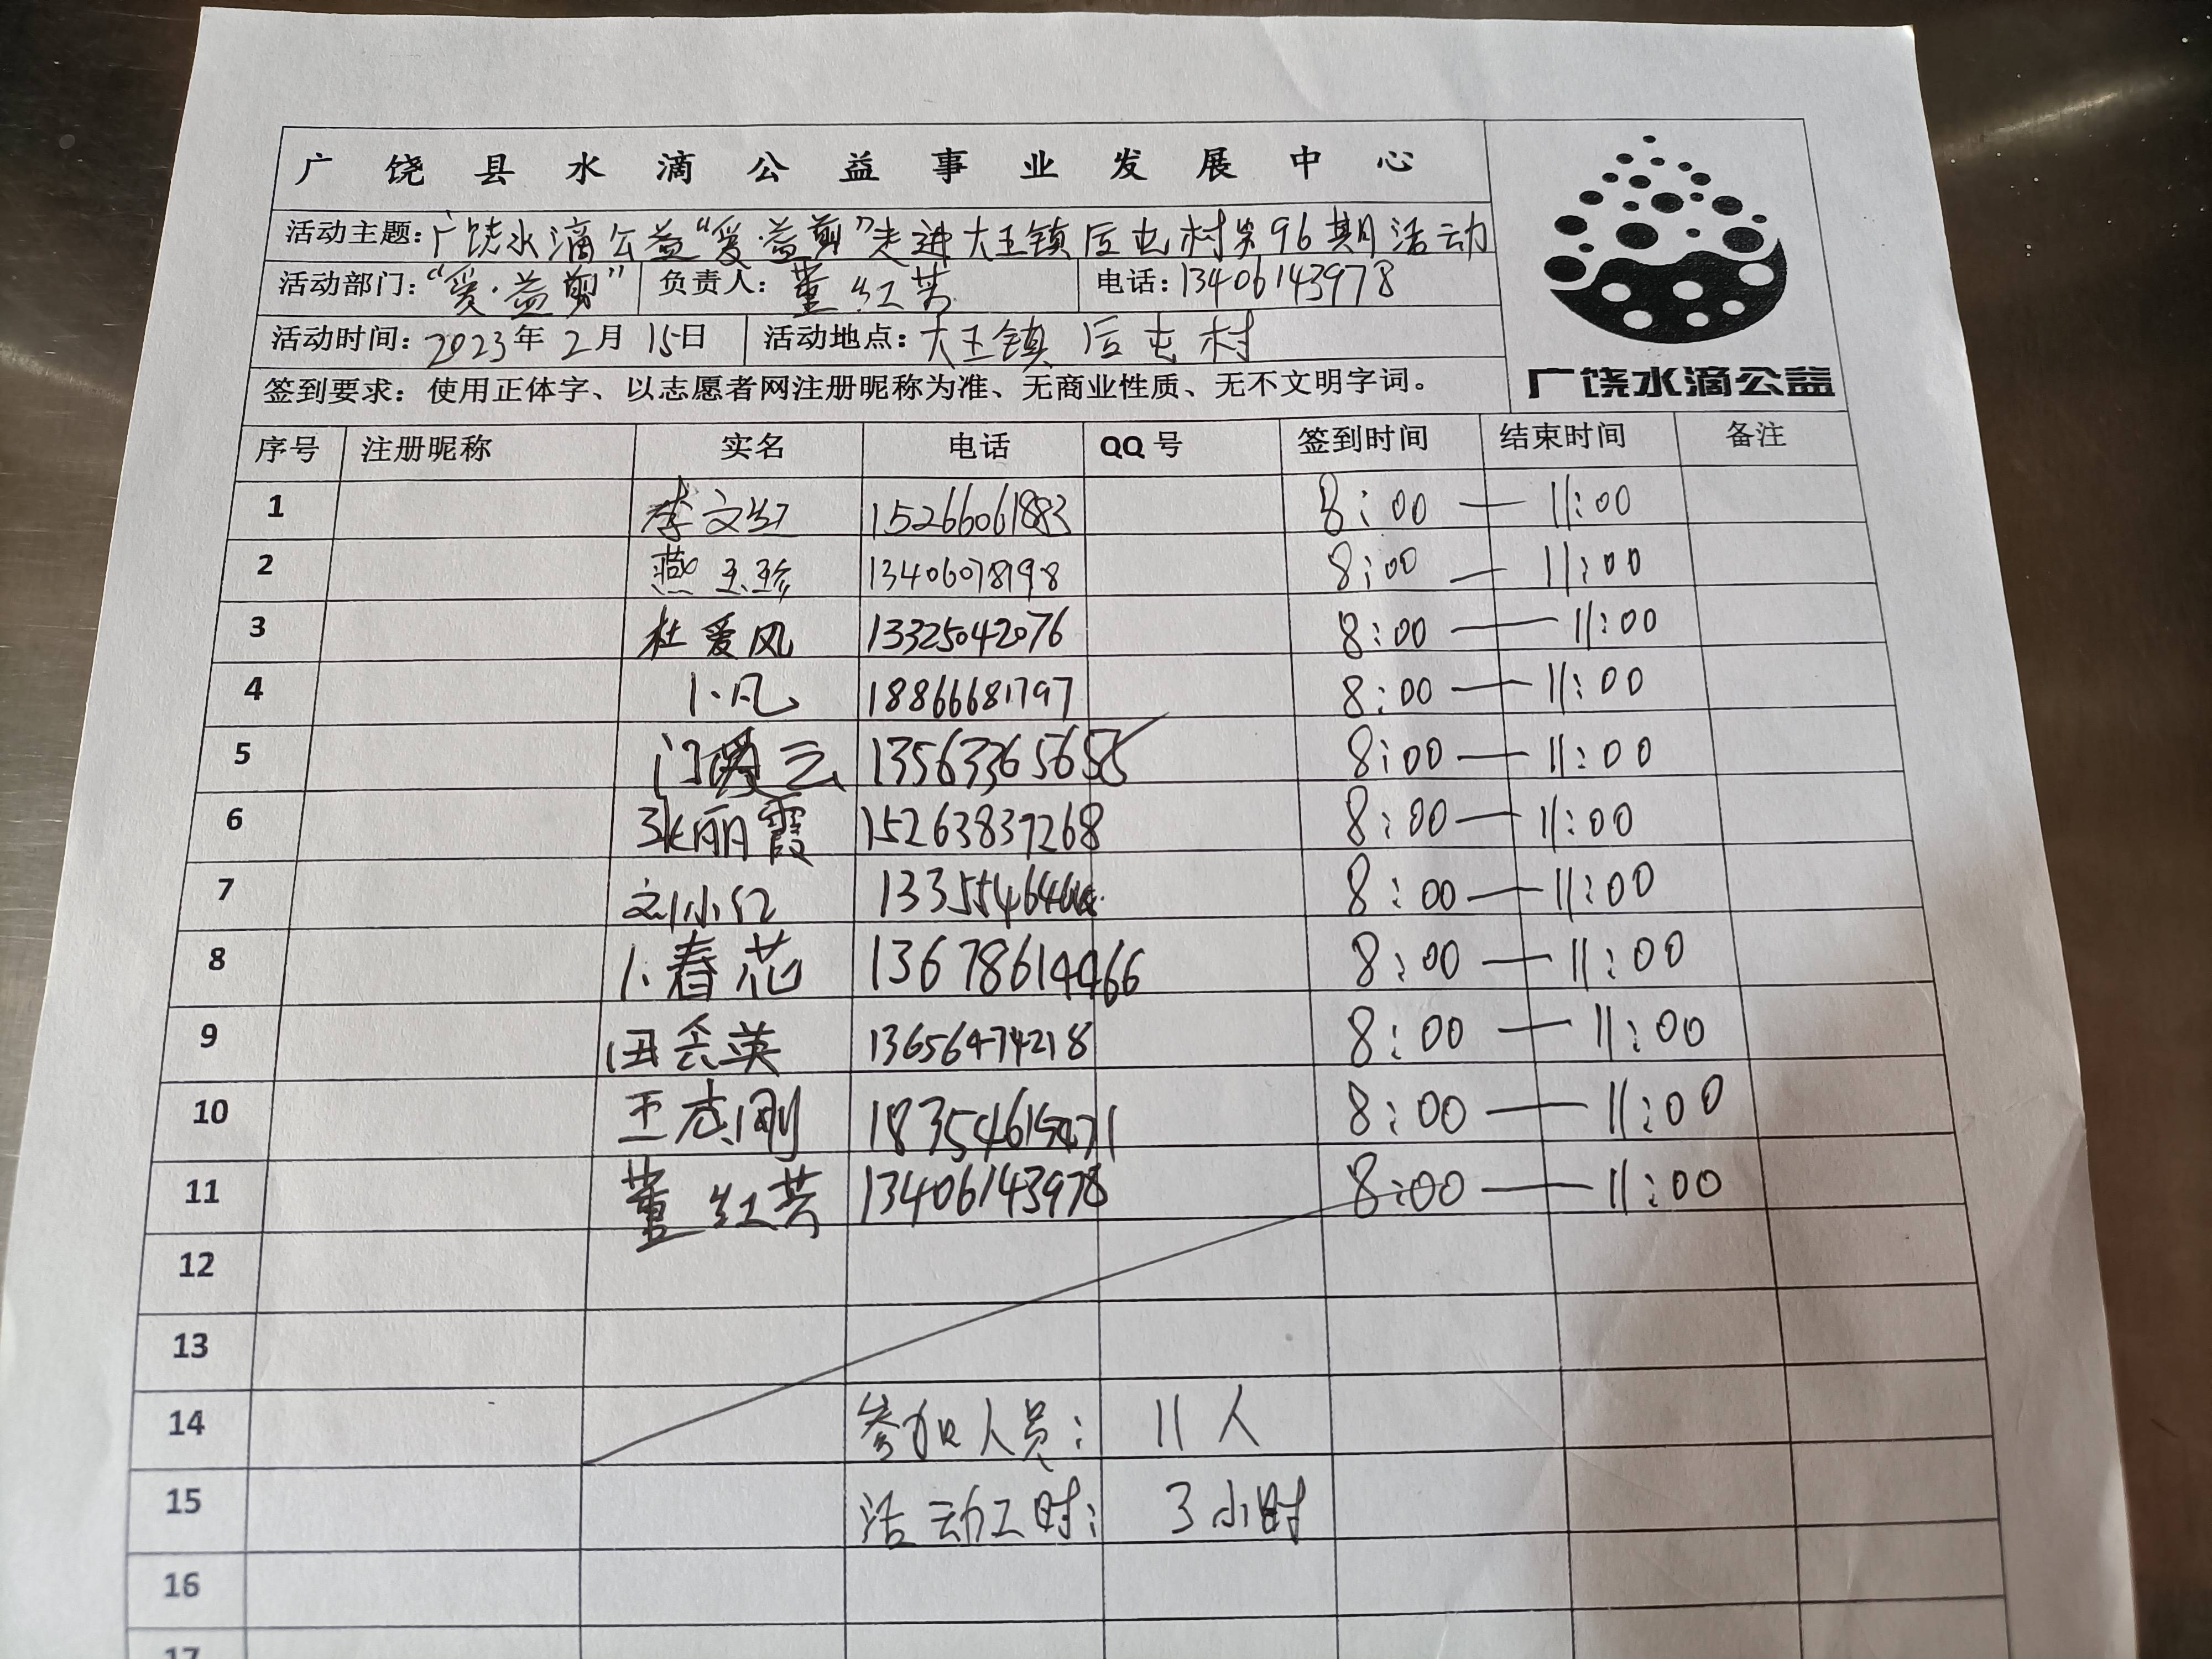 广饶县水滴公益事业发展中心
活动主题：广饶水滴公益“爱·益剪”走进大王镇后屯村第96期活动
活动部门：“爱·益剪” 负责人：董红芳 电话：13406143978
活动时间：2023年2月15日 活动地点：大王镇后屯村
签到要求：使用正体字、以志愿者网注册昵称为准、无商业性质、无不文明字词。
广饶水滴公益
序号 注册昵称 实名 电话 QQ号 签到时间 结束时间 备注
1 李文红 15266061883 8:00 — 11:00
2 燕玉珍 13406078198 8:00 — 11:00
3 杜爱风 13325042076 8:00 — 11:00
4 小凡 18866681797 8:00 — 11:00
5 门爱云 8:00 — 11:00
6 张丽霞 15263837268 8:00 — 11:00
7 刘小红 8:00 — 11:00
8 小春花 13678614466 8:00 — 11:00
9 13656474218 8:00 — 11:00
10 王志刚 8:00 — 11:00
11 董红芳 13406143978 8:00 — 11:00
12
13
14 参加人员： 11人
15 活动工时： 3小时
16
17